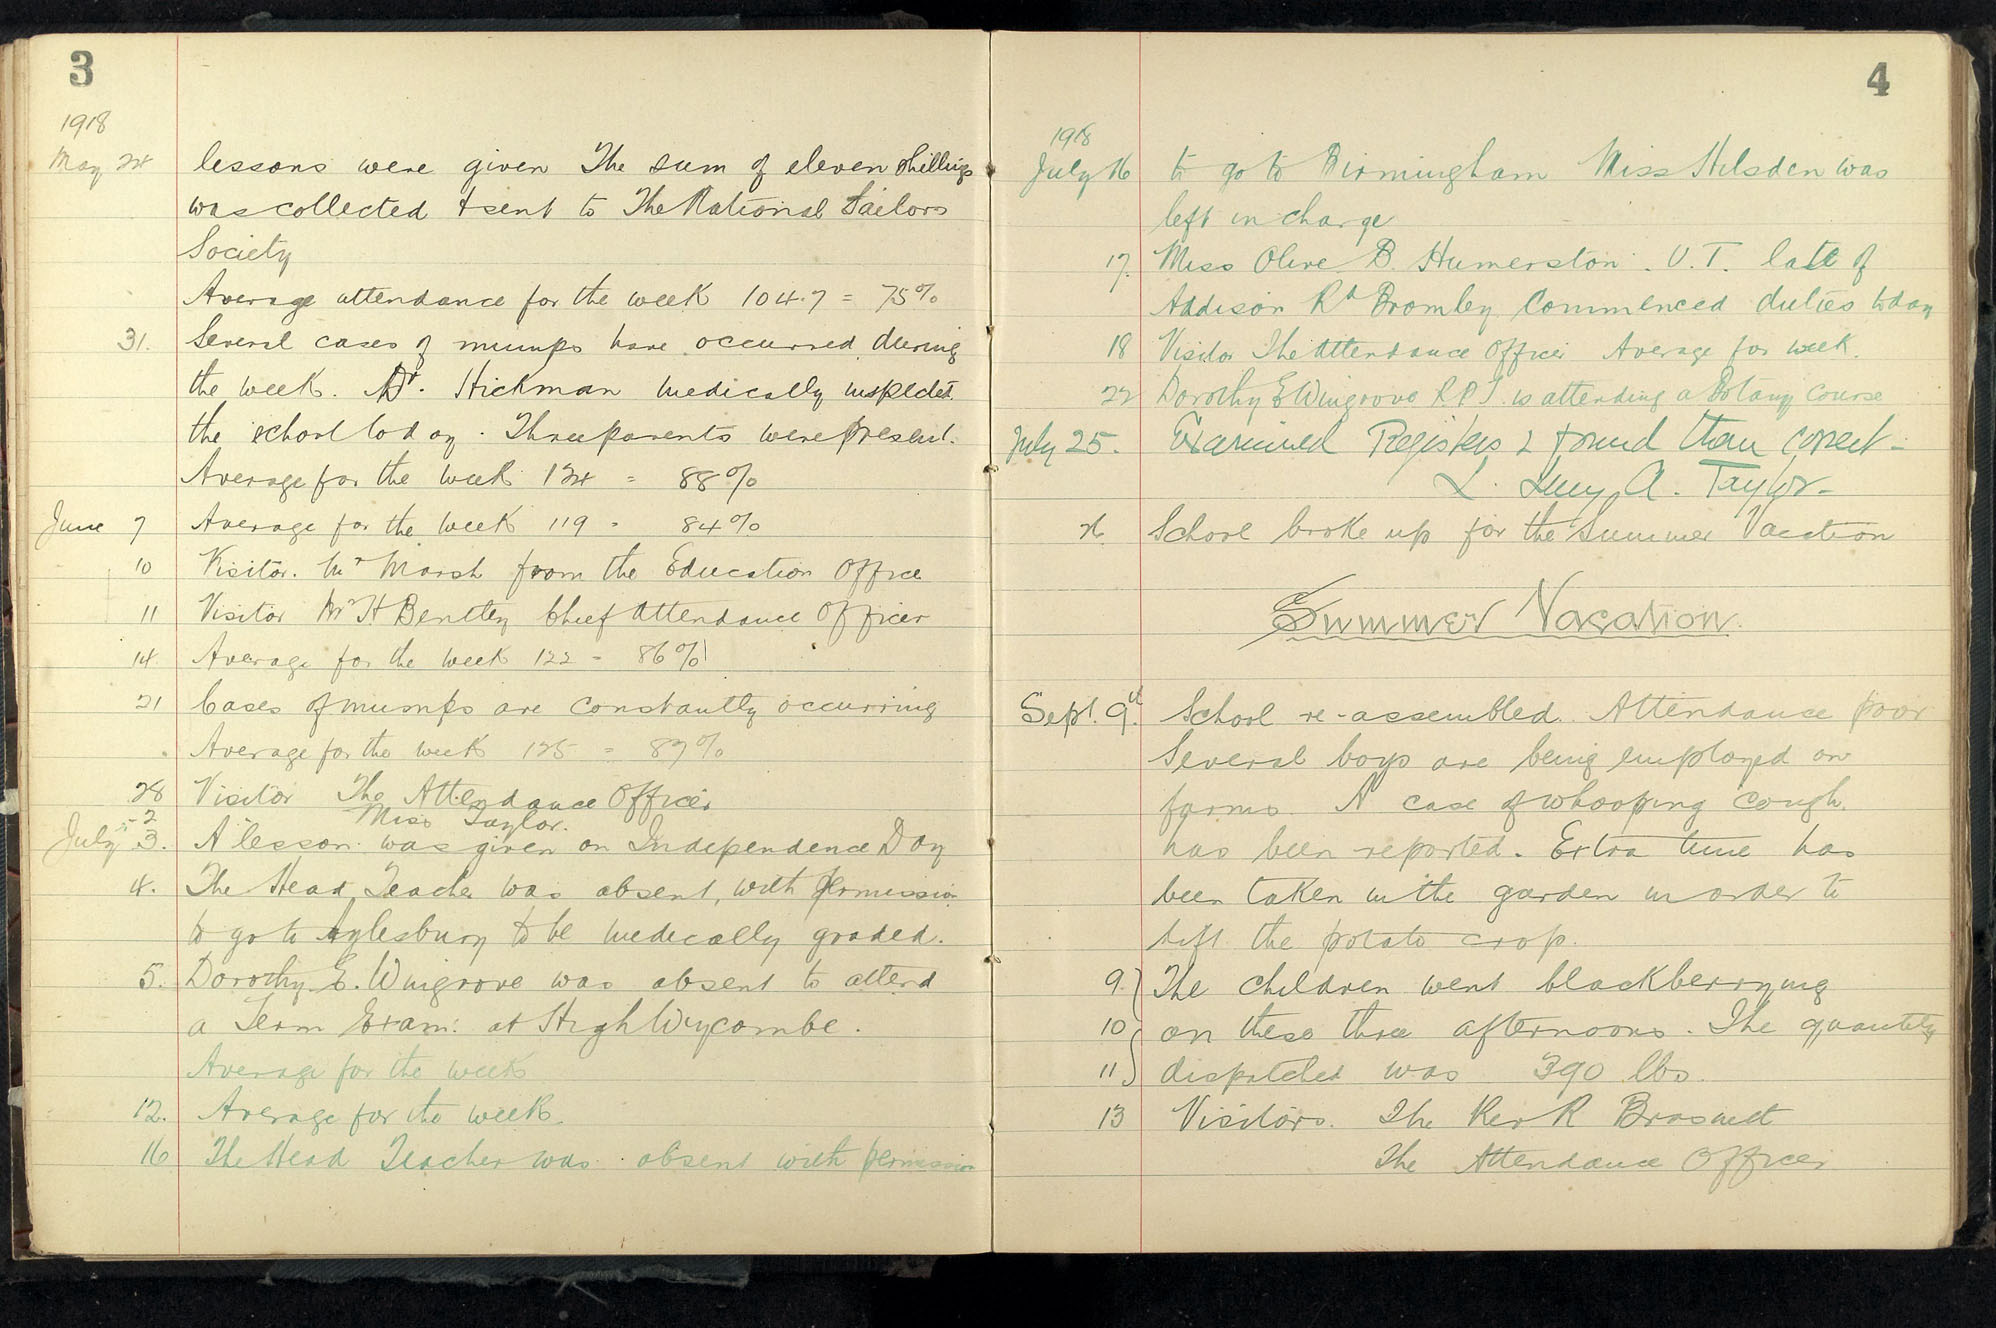 3
1918
May 24 lessons were given The sum of eleven shillings
was collected & sent to The National Sailors
Society
Average attendance for the week 104.7 = 75%
31. Several cases of mumps have occurred during
the week. Dr. Hickman medically inspected
the school today. Three parents were present.
Average for the week 124 = 88%
June 7 Average for the week 119 = 84%
10 Visitor. Mr Marsh from the Education Office
11 Visitor Mr H Bentley Chief Attendance Officer
14. Average for the week 122 = 86%
21 Cases of mumps are constantly occurring
Average for the week 125 = 87%
28 Visitor The Attendance Officer
2 Miss Taylor.
July 3. A lesson was given on Independence Day
4. The Head Teacher was absent, with permission
to go to Aylesbury to be medically graded.
5. Dorothy E. Wingrove was absent to attend
a Term Exam: at High Wycombe.
Average for the week
12. Average for the week.
16 The Head Teacher was absent with permission
4
1918
July 16 to go to Birmingham Miss Hilsden was
left in charge
17. Miss Olive B. Humerston. U.T. late of
Addison Rd Bromley Commenced duties today
18 Visitor The Attendance Officer Average for week.
22 Dorothy E Wingrove R P T is attending a Botany Course
July 25. Examined Registers & found them correct -
L. Lucy A. Taylor -
26 School broke up for the Summer Vacation
Summer Vacation.
Sept. 9th School re-assembled. Attendance poor
Several boys are being employed on
farms. A case of whooping cough.
has been reported. Extra time has
been taken in the garden in order to
lift the potato crop.
9 The children went blackberrying
10 on these three afternoons. The quantity
11 dispatched was 390 lbs.
13 Visitors. The Rev R
The Attendance Officer